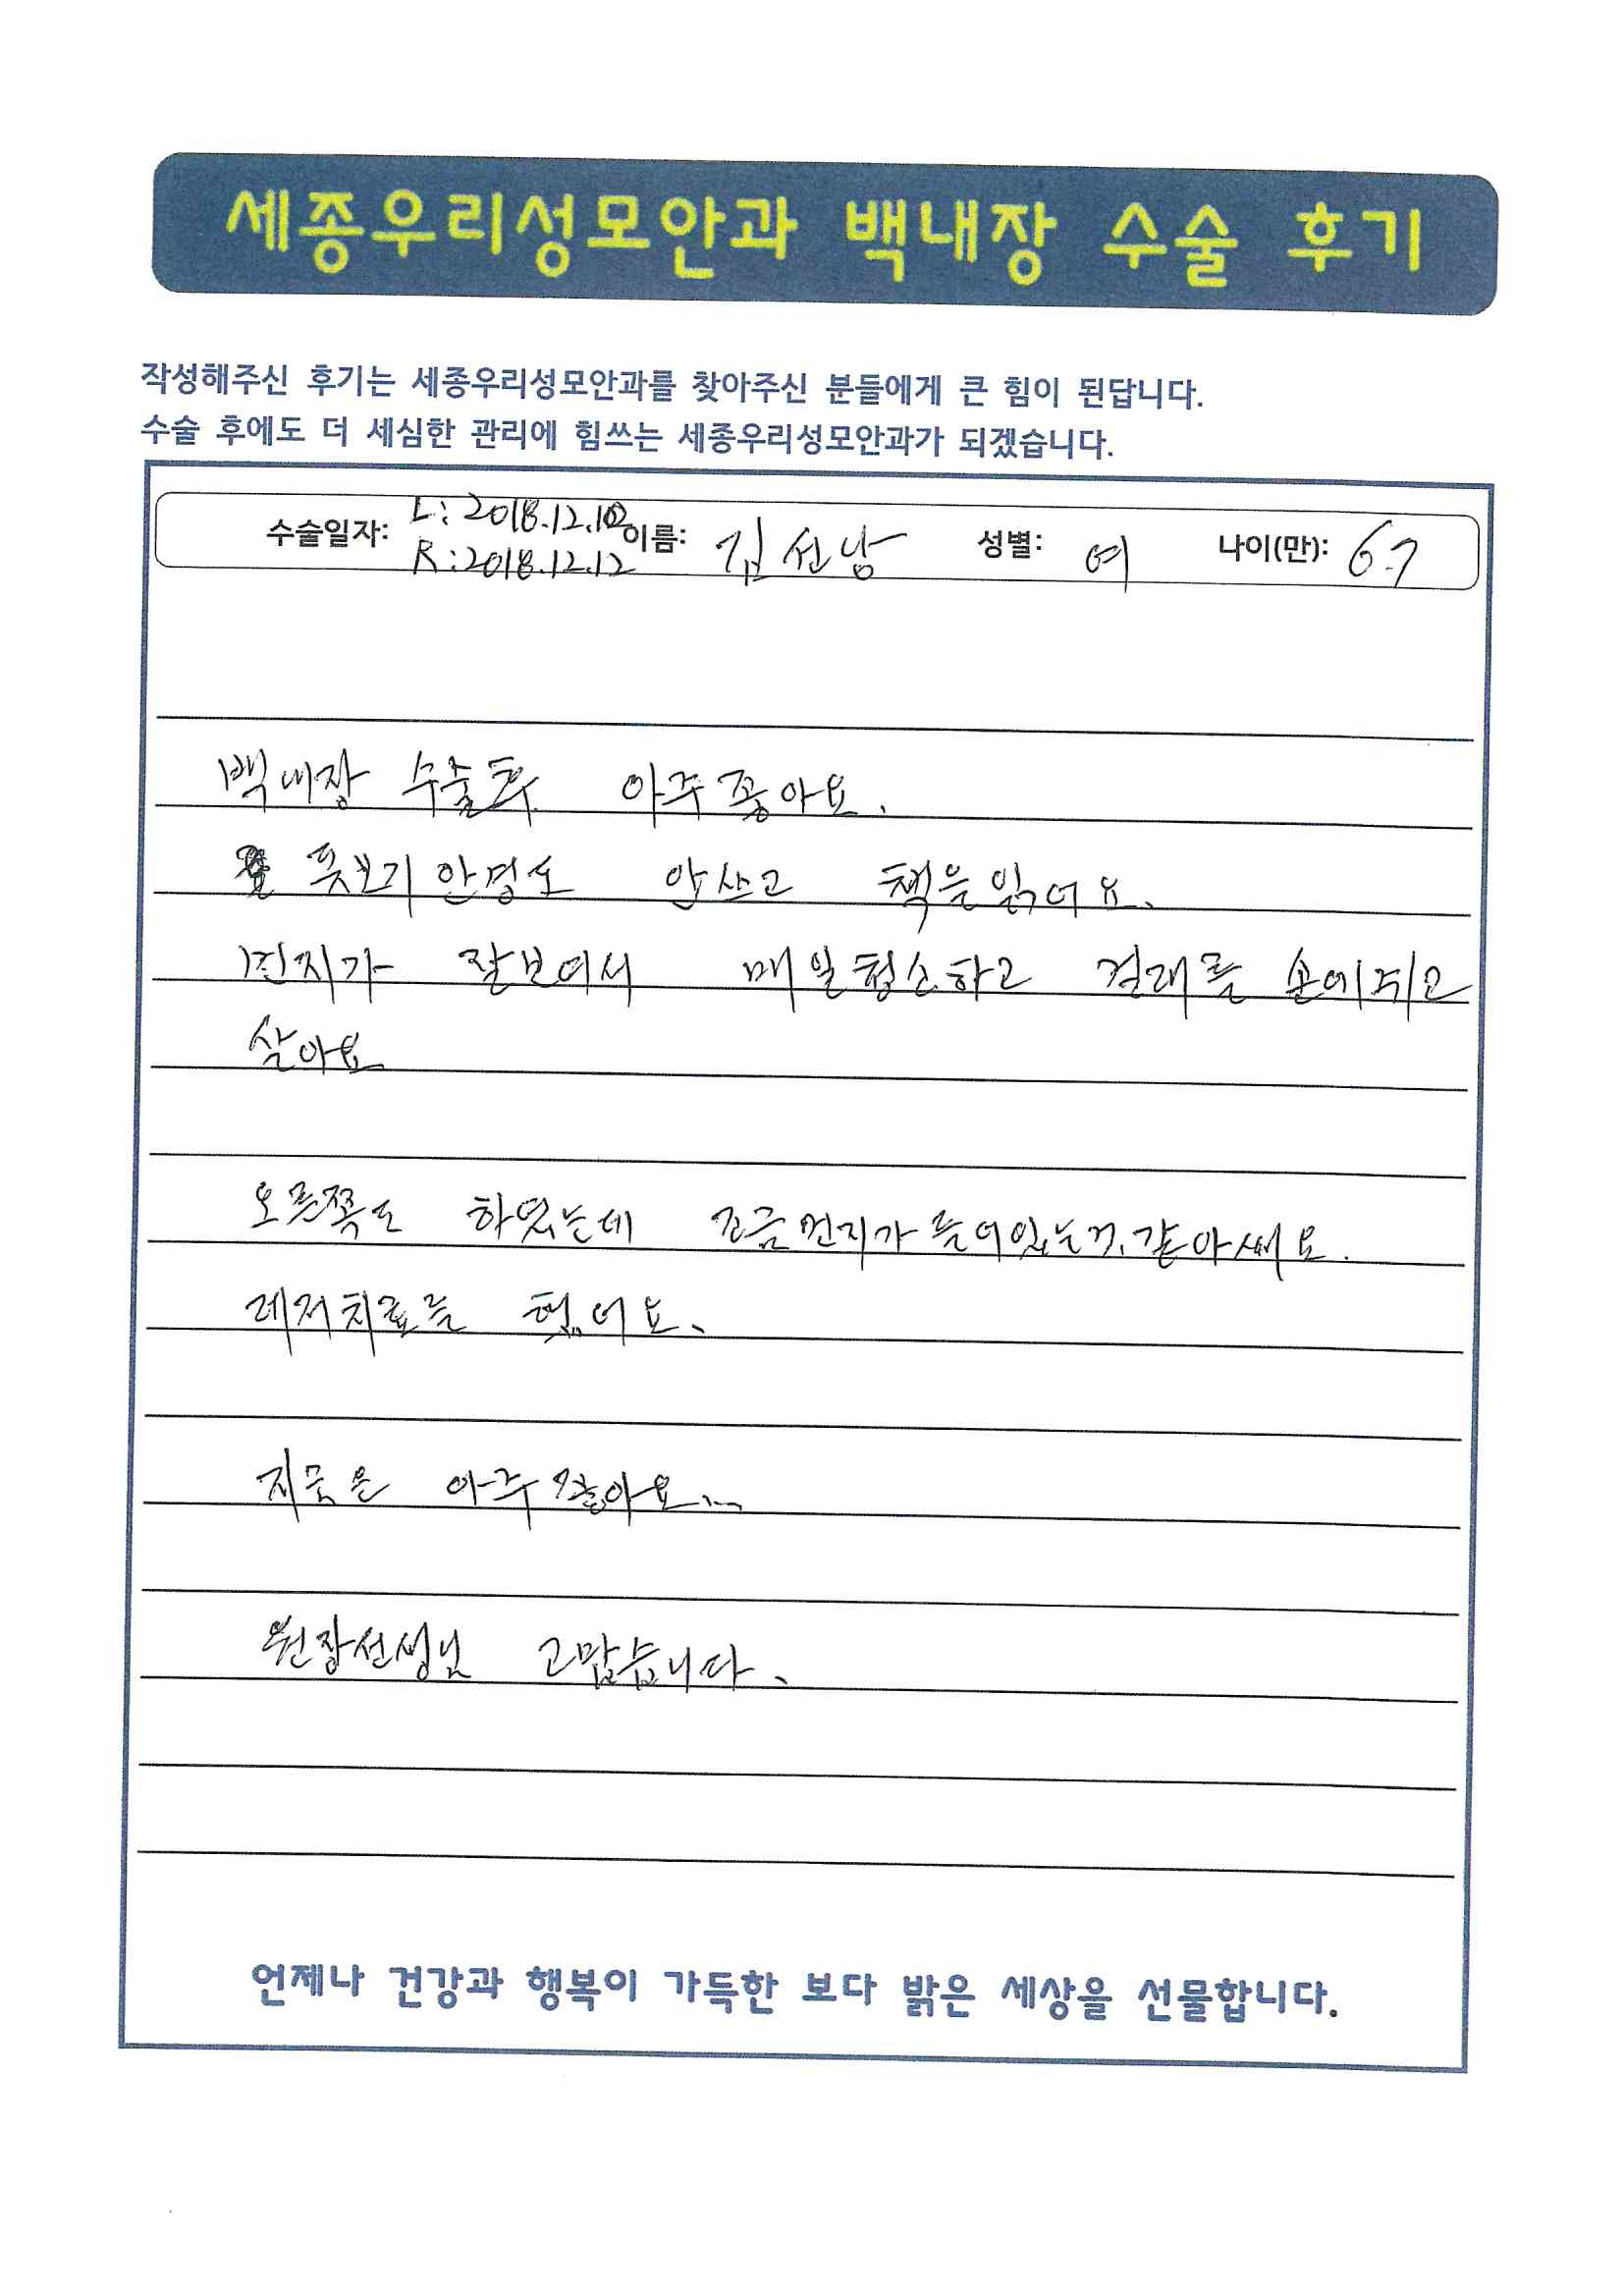 세종우리성모안과 백내장 수술 후기
작성해주신 후기는 세종우리성모안과를 찾아주신 분들에게 큰 힘이 된답니다.
수술 후에도 더 세심한 관리에 힘쓰는 세종우리성모안과가 되겠습니다.
수술일자: L: 2018.12.10 R: 2018.12.12 이름: 김선남 성별: 여 나이(만): 67
백내장 수술후 아주 좋아요.
돗보기 안경도 안쓰고 책을 읽어요.
먼지가 잘보여서 매일청소하고 걸래를 손에쥐고
살아요
오른쪽도 하였는데 조금먼지가 들어있는거 같아써요.
레저치료를 했어요.
지금은 아주 좋아요...
원장선생님 고맙습니다.
언제나 건강과 행복이 가득한 보다 밝은 세상을 선물합니다.